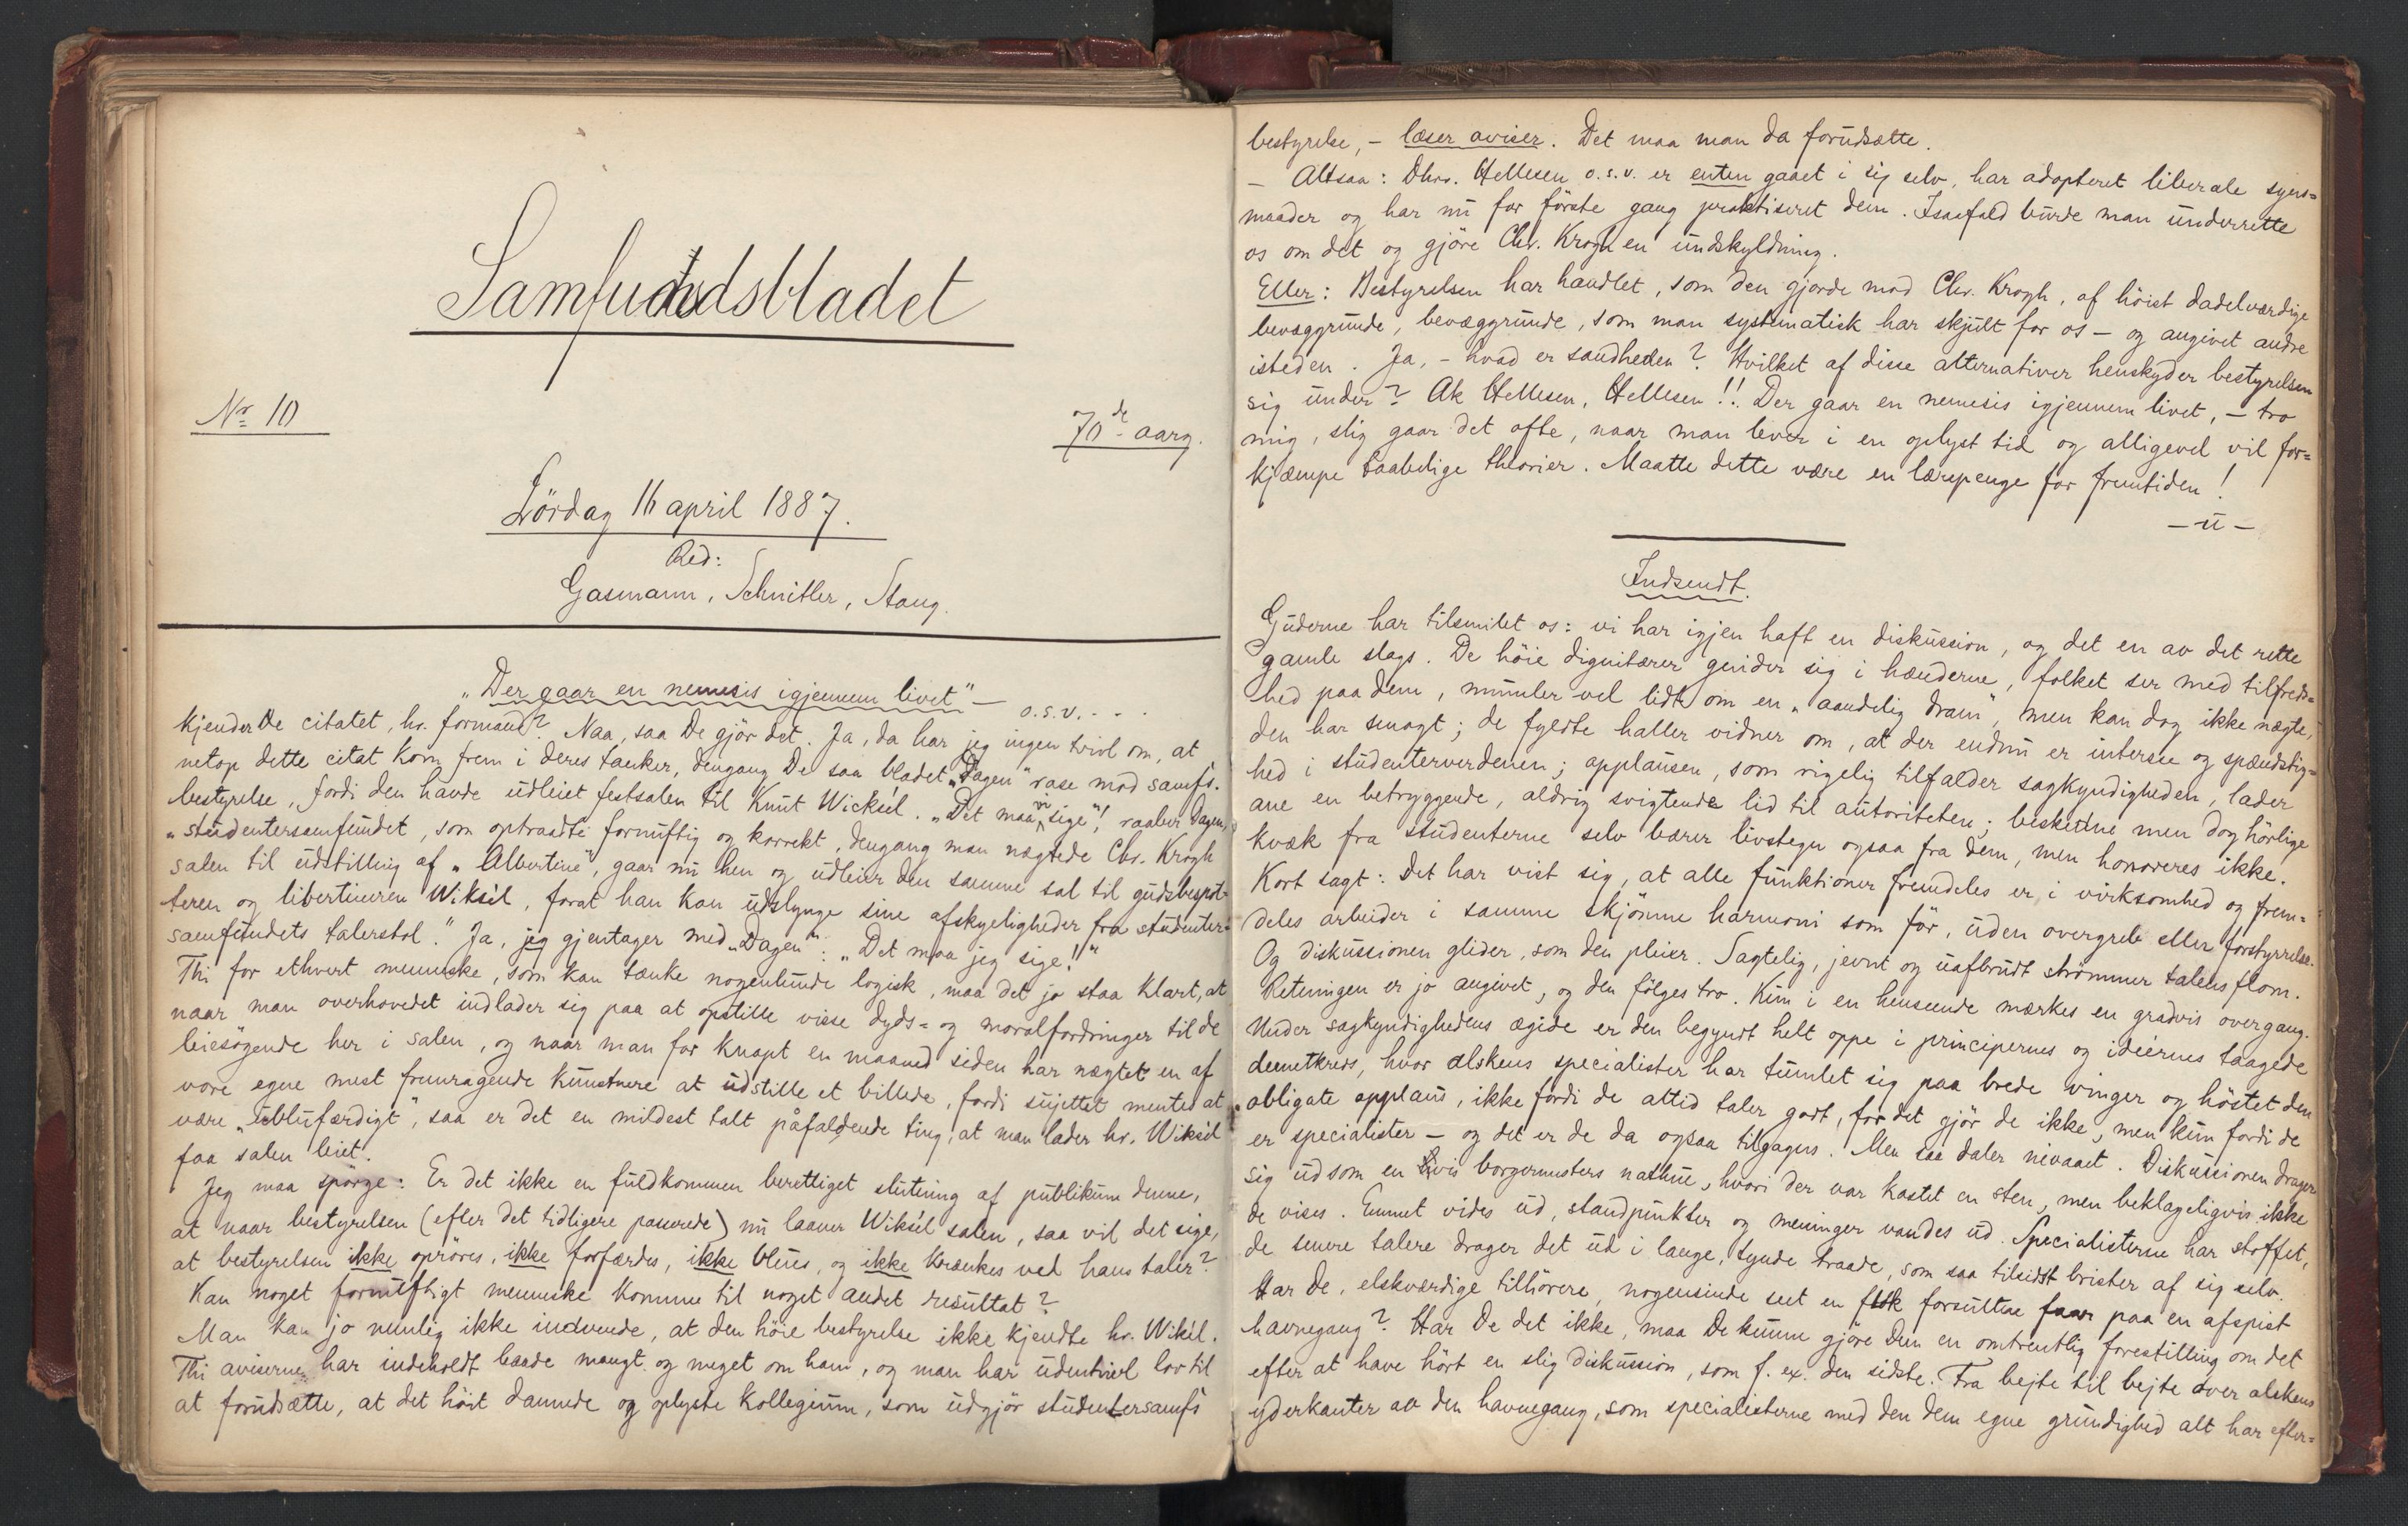 Samfundsbladet
No 10
70de aarg.
Lördag 16 april 1887.
Red:
Gasmann, Schnitler, Stang.
"Der gaar en nemesis igjennem livet" — o.s.v. - - -
Kjender De citatet, hr. formand? Naa, saa De gjör det. Ja, da har jeg ingen tvivl om, at
netop dette citat kom frem i deres tanker, dengang De saa bladet "Dagen" rase mod samfs.
bestyrelse, fordi den havde udleiet festsalen til Knut Wicksél. "Det maa vi sige"! raaber Dagen,
"studentersamfundet, som optraadte fornuftig og korrekt, dengang man nægtede Chr. Krogh
salen til udstilling af "Albertine", gaar nu hen og udleier den samme sal til gudsbespot-
teren og libertineren Wiksél, forat han kan udslynge sine afskyeligheder fra studenter-
samfundets talerstol." Ja, jeg gjentager med "Dagen": "Det maa jeg sige!"
Thi for ethvert menneske, som kan tænke nogenlunde logisk, maa det jo staa klart, at
naar man overhovedet indlader sig paa at opstille visse dyds= og moralfordringer til de
leiesögende her i salen, og naar man for knapt en maaned siden har nægtet en af
vore egne mest fremragende kunstnere at udstille et billede, fordi sujettet mentes at
være "ublufærdigt", saa er det en mildest talt påfaldende ting, at man lader hr. Wiksél
faa salen leiet.
Jeg maa spörge: Er det ikke en fuldkommen berettiget slutning af publikum denne,
at naar bestyrelsen (efter det tidligere passerede) nu laaner Wiksél salen, saa vil det sige,
at bestyrelsen ikke oprörer, ikke forfærdes, ikke blues, og ikke krænkes ved hans taler?
Kan noget fornuftigt menneske komme til noget andet resultat?
Man kan jo nemlig ikke indvende, at den höie bestyrelse ikke kjendte hr. Wiksél.
Thi aviserne har indeholdt baade mangt og meget om ham, og man har udentvivl lov til
at forudsætte, at det höist dannede og oplyste kollegium, som udgjör studentersamfs
bestyrelse, - læser aviser. Det maa man da forudsætte.
- Altsaa: Dhrr. Hellesen o.s.v. er enten gaaet i sig selv, har adopteret liberale syns=
maader og har nu for förste gang praktiseret dem. Isaafald burde man underrette
os om det og gjöre Chr. Krogh en undskyldning.
Eller: Bestyrelsen har handlet, som den gjorde mod Chr. Krogh, af höist dadelværdige
bevæggrunde, bevæggrunde, som man systematisk har skjult for os — og angivet andre
isteden. Ja, - hvad er sandheden? Hvilket af disse alternativer henskyder bestyrelsen
sig under? Ak Hellesen, Hellesen!! Der gaar en nemesis igjennem livet, — tro
mig, slig gaar det ofte, naar man lever i en oplyst tid og alligevel vil for=
kjæmpe taabelige theorier. Maatte dette være en lærepenge for fremtiden!
— u —
Indsendt.
Guderne har tilsmilet os: vi har igjen haft en diskussion, og det en av det rette
gamle slags. De höie dignitærer gnider sig i hænderne, folket ser med tilfreds=
hed paa dem, mumler vel lidt om en "aandelig dram", men kan dog ikke nægte,
den har smagt; de fyldte haller vidner om, at der endnu er interesse og spændstig=
hed i studenterverdenen; applausen, som rigelig tilfalder sagkyndigheden, lader
ane en betryggende, aldrig svigtende lid til autoriteten; beskedne men dog hörlige
kvæk fra studenterne selv bærer livstegn ogsaa fra dem, men honoreres ikke.
Kort sagt: Det har vist sig, at alle funktioner fremdeles er i virksomhed og frem=
deles arbeider i samme skjönne harmoni som för, uden overgreb eller forstyrrelse.
Og diskussionen glider, som den pleier. Sagtelig, jevnt og uafbrudt strömmer talens flom.
Retningen er jo angivet, og den fölges tro. Kun i en henseende mærkes en gradvis overgang.
Under sagkyndighedens ægide er den begyndt helt oppe i principernes og idéernes taagede
dunstkreds, hvor alskens specialister har tumlet sig paa brede vinger og höstet den
obligate applaus, ikke fordi de altid taler godt, for det gjör de ikke, men kun fordi de
er specialister — og det er de da ogsaa tilgagns. Men saa daler nivaaet. Diskussionen drager
sig ud som en vis borgermesters nathue, hvori der var kastet en sten, men beklageligvis ikke
de vises. Emnet vides ud, standpunkter og meninger vandes ud. Specialisterne har stoffet,
de senere talere drager det ud i lange, tynde traade, som saa tilsidst brister af sig selv.
Har De, elskværdige tilhörere, nogensinde seet en flok forsultne faar paa en afspist
havnegang? Har De det ikke, maa De kunne gjöre Dem en omtrentlig forestilling om det
efter at have hört en slig diskussion, som f. ex. den sidste. Fra bejte til bejte over alskens
yderkanter av den havnegang, som specialisterne med den dem egne grundighed alt har efter=